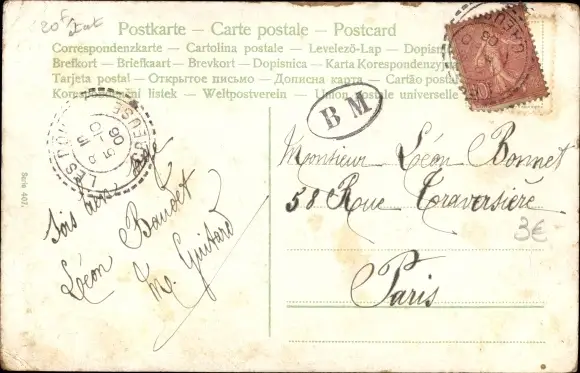 20f
Postkarte — Carte postale — Postcard
Correspondenzkarte — Cartolina postale — Levelező-Lap — Dopisn
Brefkort — Briefkaart — Brevkort — Dopisnica — Karta Korespondenzyj
Tarjeta postal — Открытое письмо — Дописна карта — Cartão postal
Korespondenční lístek — Weltpostverein — Union postale universelle
BM
15-10
06
Serie 407.
Monsieur Léon Bonnet
58 Rue Traversière
3€
Paris
Sois
Léon Baudet
M. Guitard